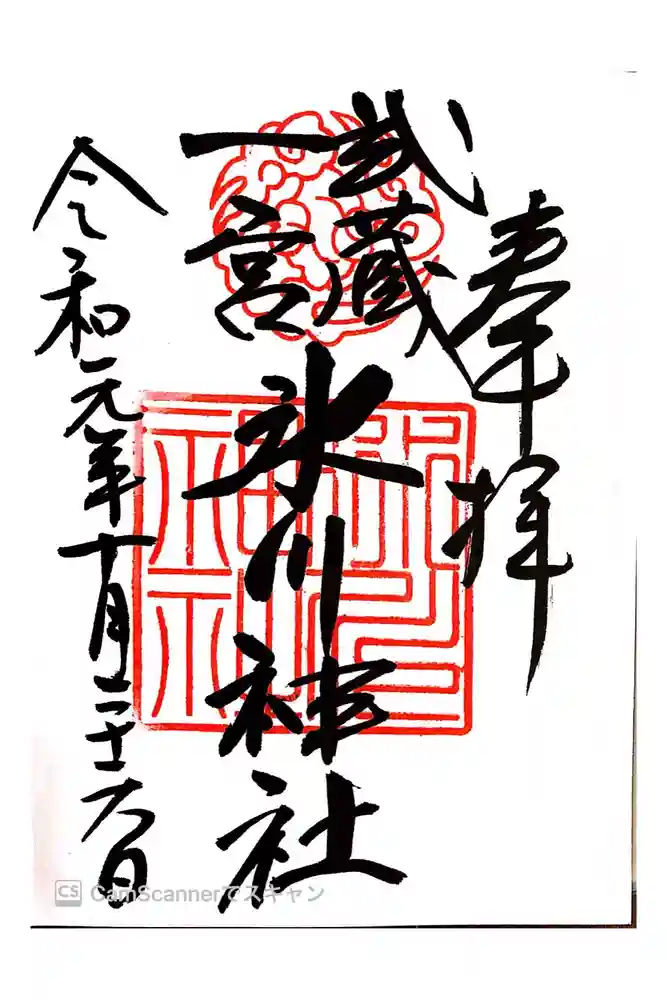 奉拝
武蔵
一宮
氷川神社
令和元年十月二十六日
CamScannerでスキャン